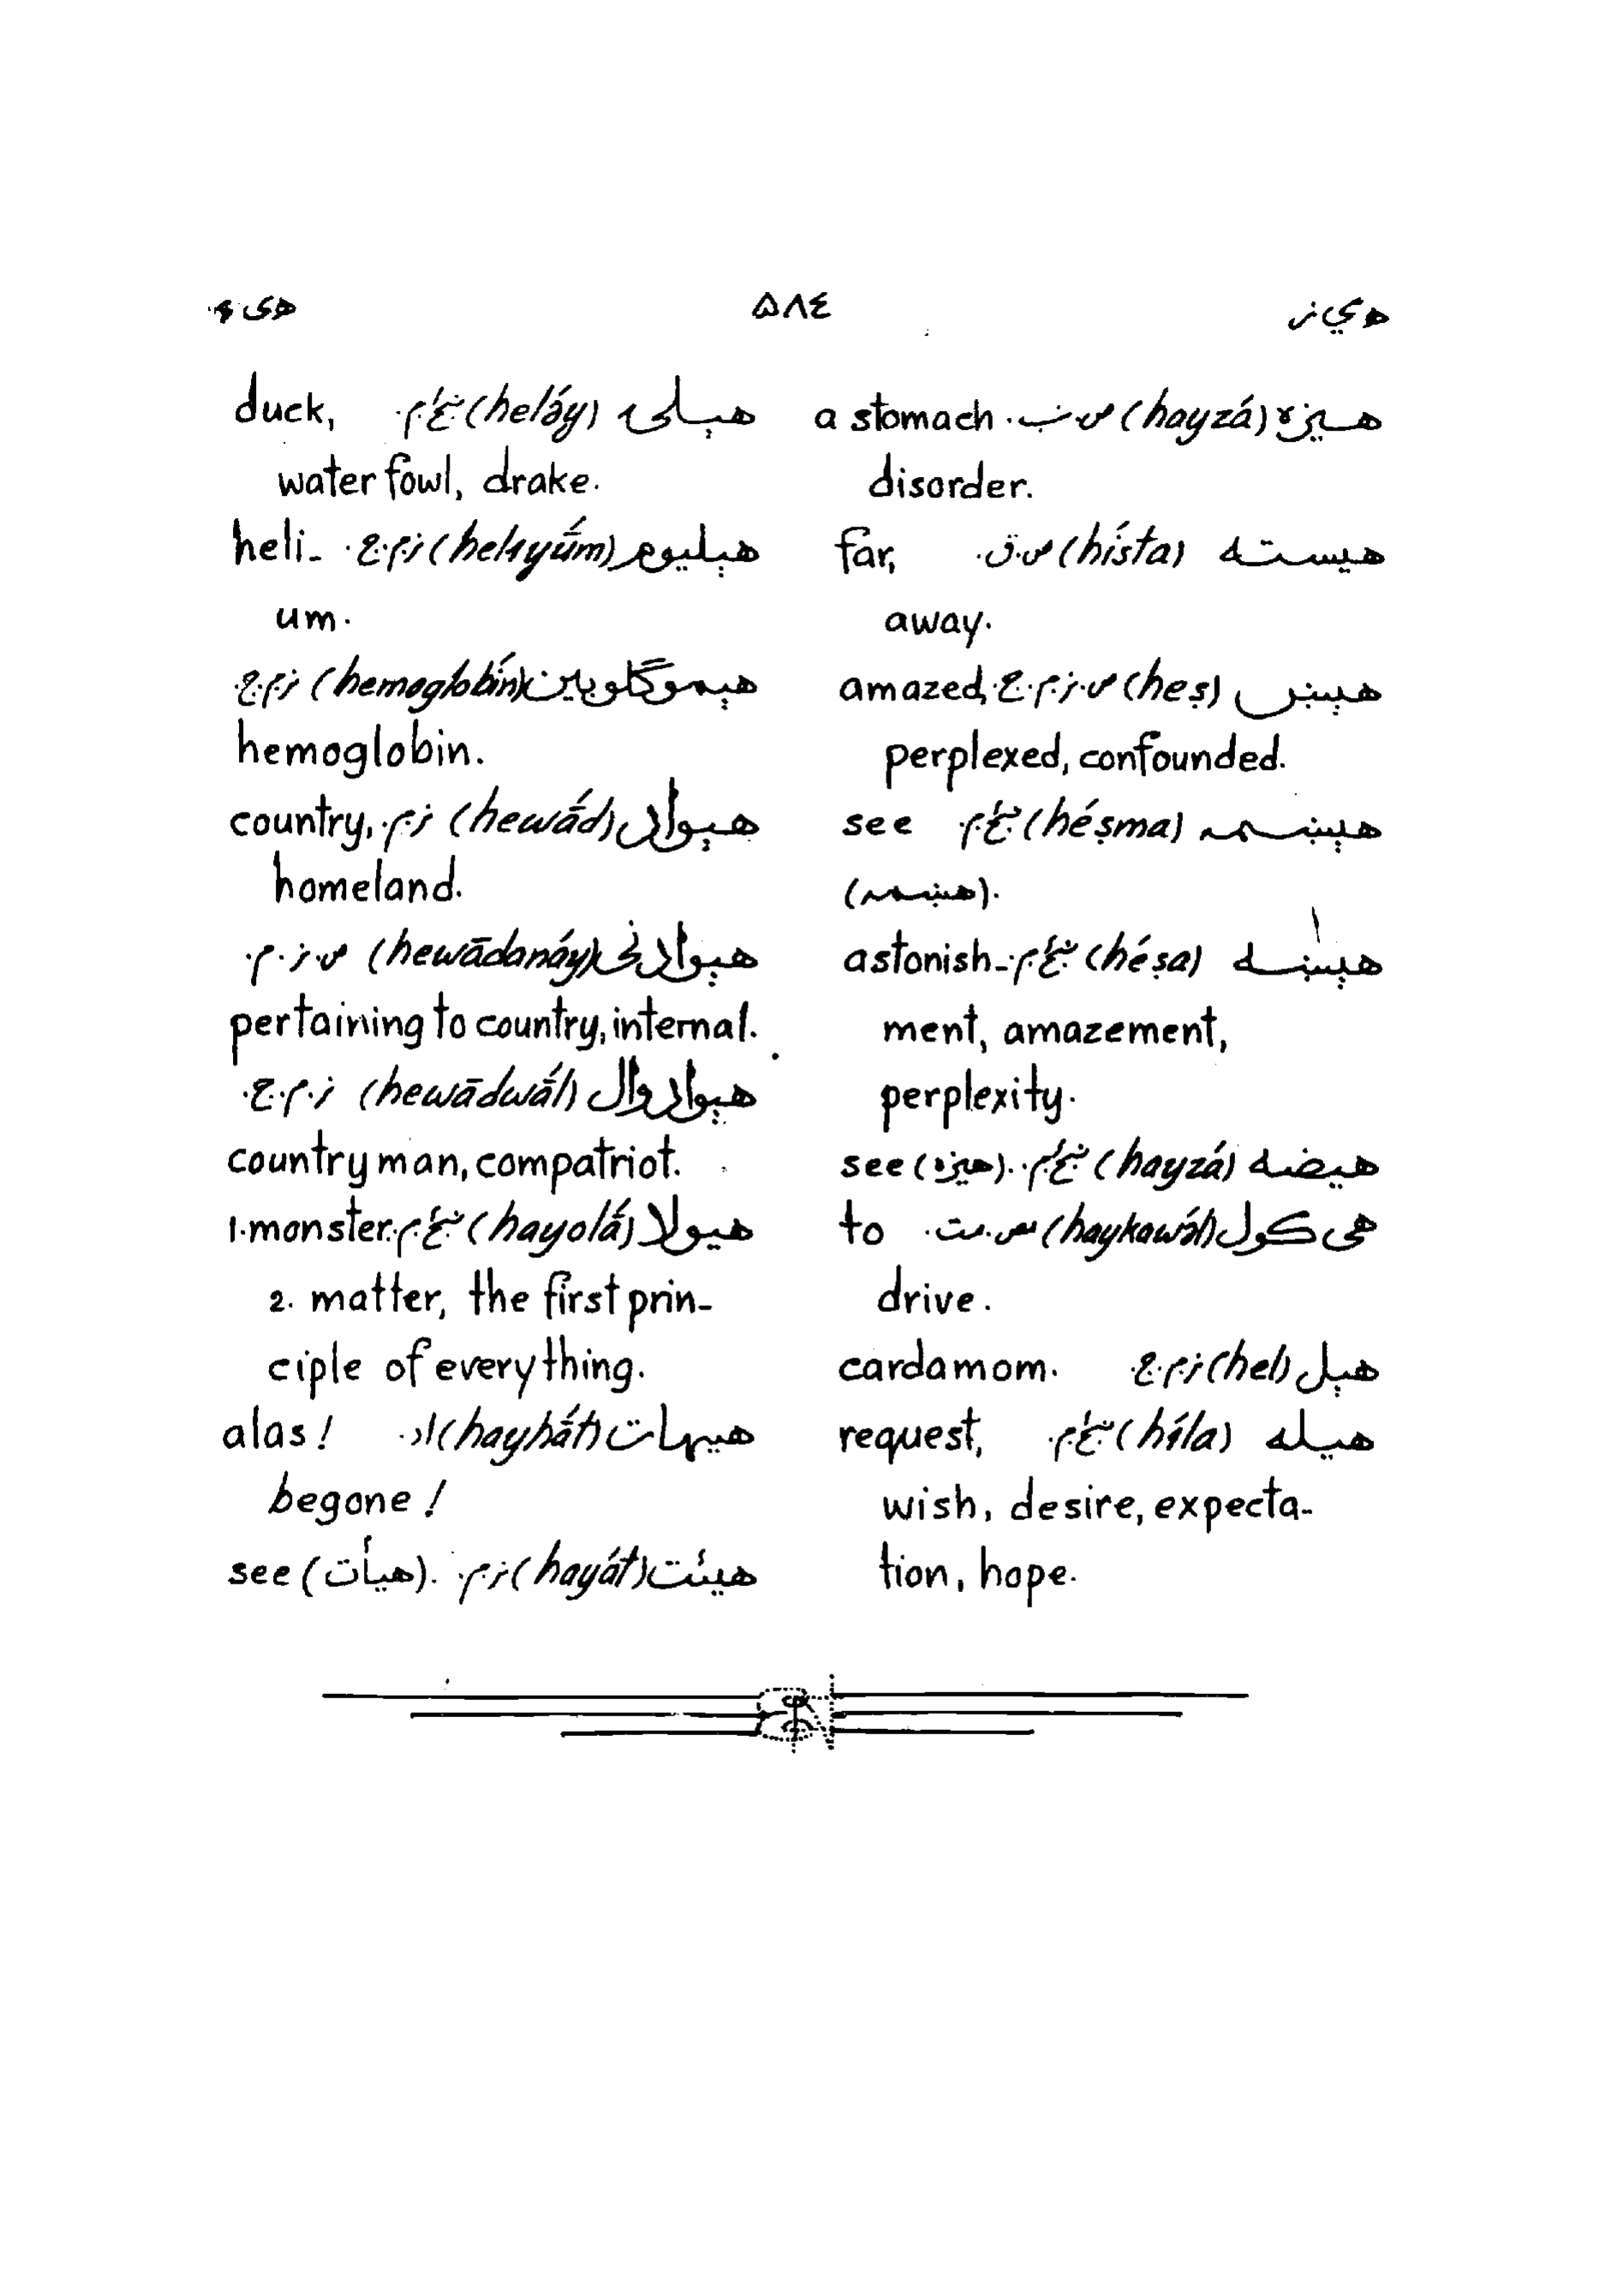 هي ز ۵۸۴ هی ء
هيزه (hayzá) ص.ب. a stomach
disorder.
هيسته (hísta) ص.ق. far,
away.
هېښ (heṣ) ص.ز.م.ج. amazed,
perplexed, confounded.
هېښمه (héṣma) ښځ.م. see
(هښمه).
هېښه (héṣa) ښځ.م. astonish-
ment, amazement,
perplexity.
هيضه (hayzá) ښځ.م. see (هيزه).
هی کول (haykawə́l) مص.مت. to
drive.
هېل (hel) ز.م.ج. cardamom.
هيله (híla) ښځ.م. request,
wish, desire, expecta-
tion, hope.
هېلۍ (heləy) ښځ.م. duck,
water fowl, drake.
هېليوم (helıyū́m) ز.م.ج. heli-
um.
هېموگلوبين (hemoglobín) ز.م.ج
hemoglobin.
هېواد (hewā́d) ز.م. country,
homeland.
هېوادنی (hewādanáy) ص.ز.م.
pertaining to country, internal.
هېوادوال (hewādwā́l) ز.م.ج.
country man, compatriot.
هيولا (hayolā́) ښځ.م. 1. monster.
2. matter, the first prin-
ciple of everything.
هيهات (hayhā́t) اد. alas!
begone!
هيئت (hayát) ز.م. see (هيأت).